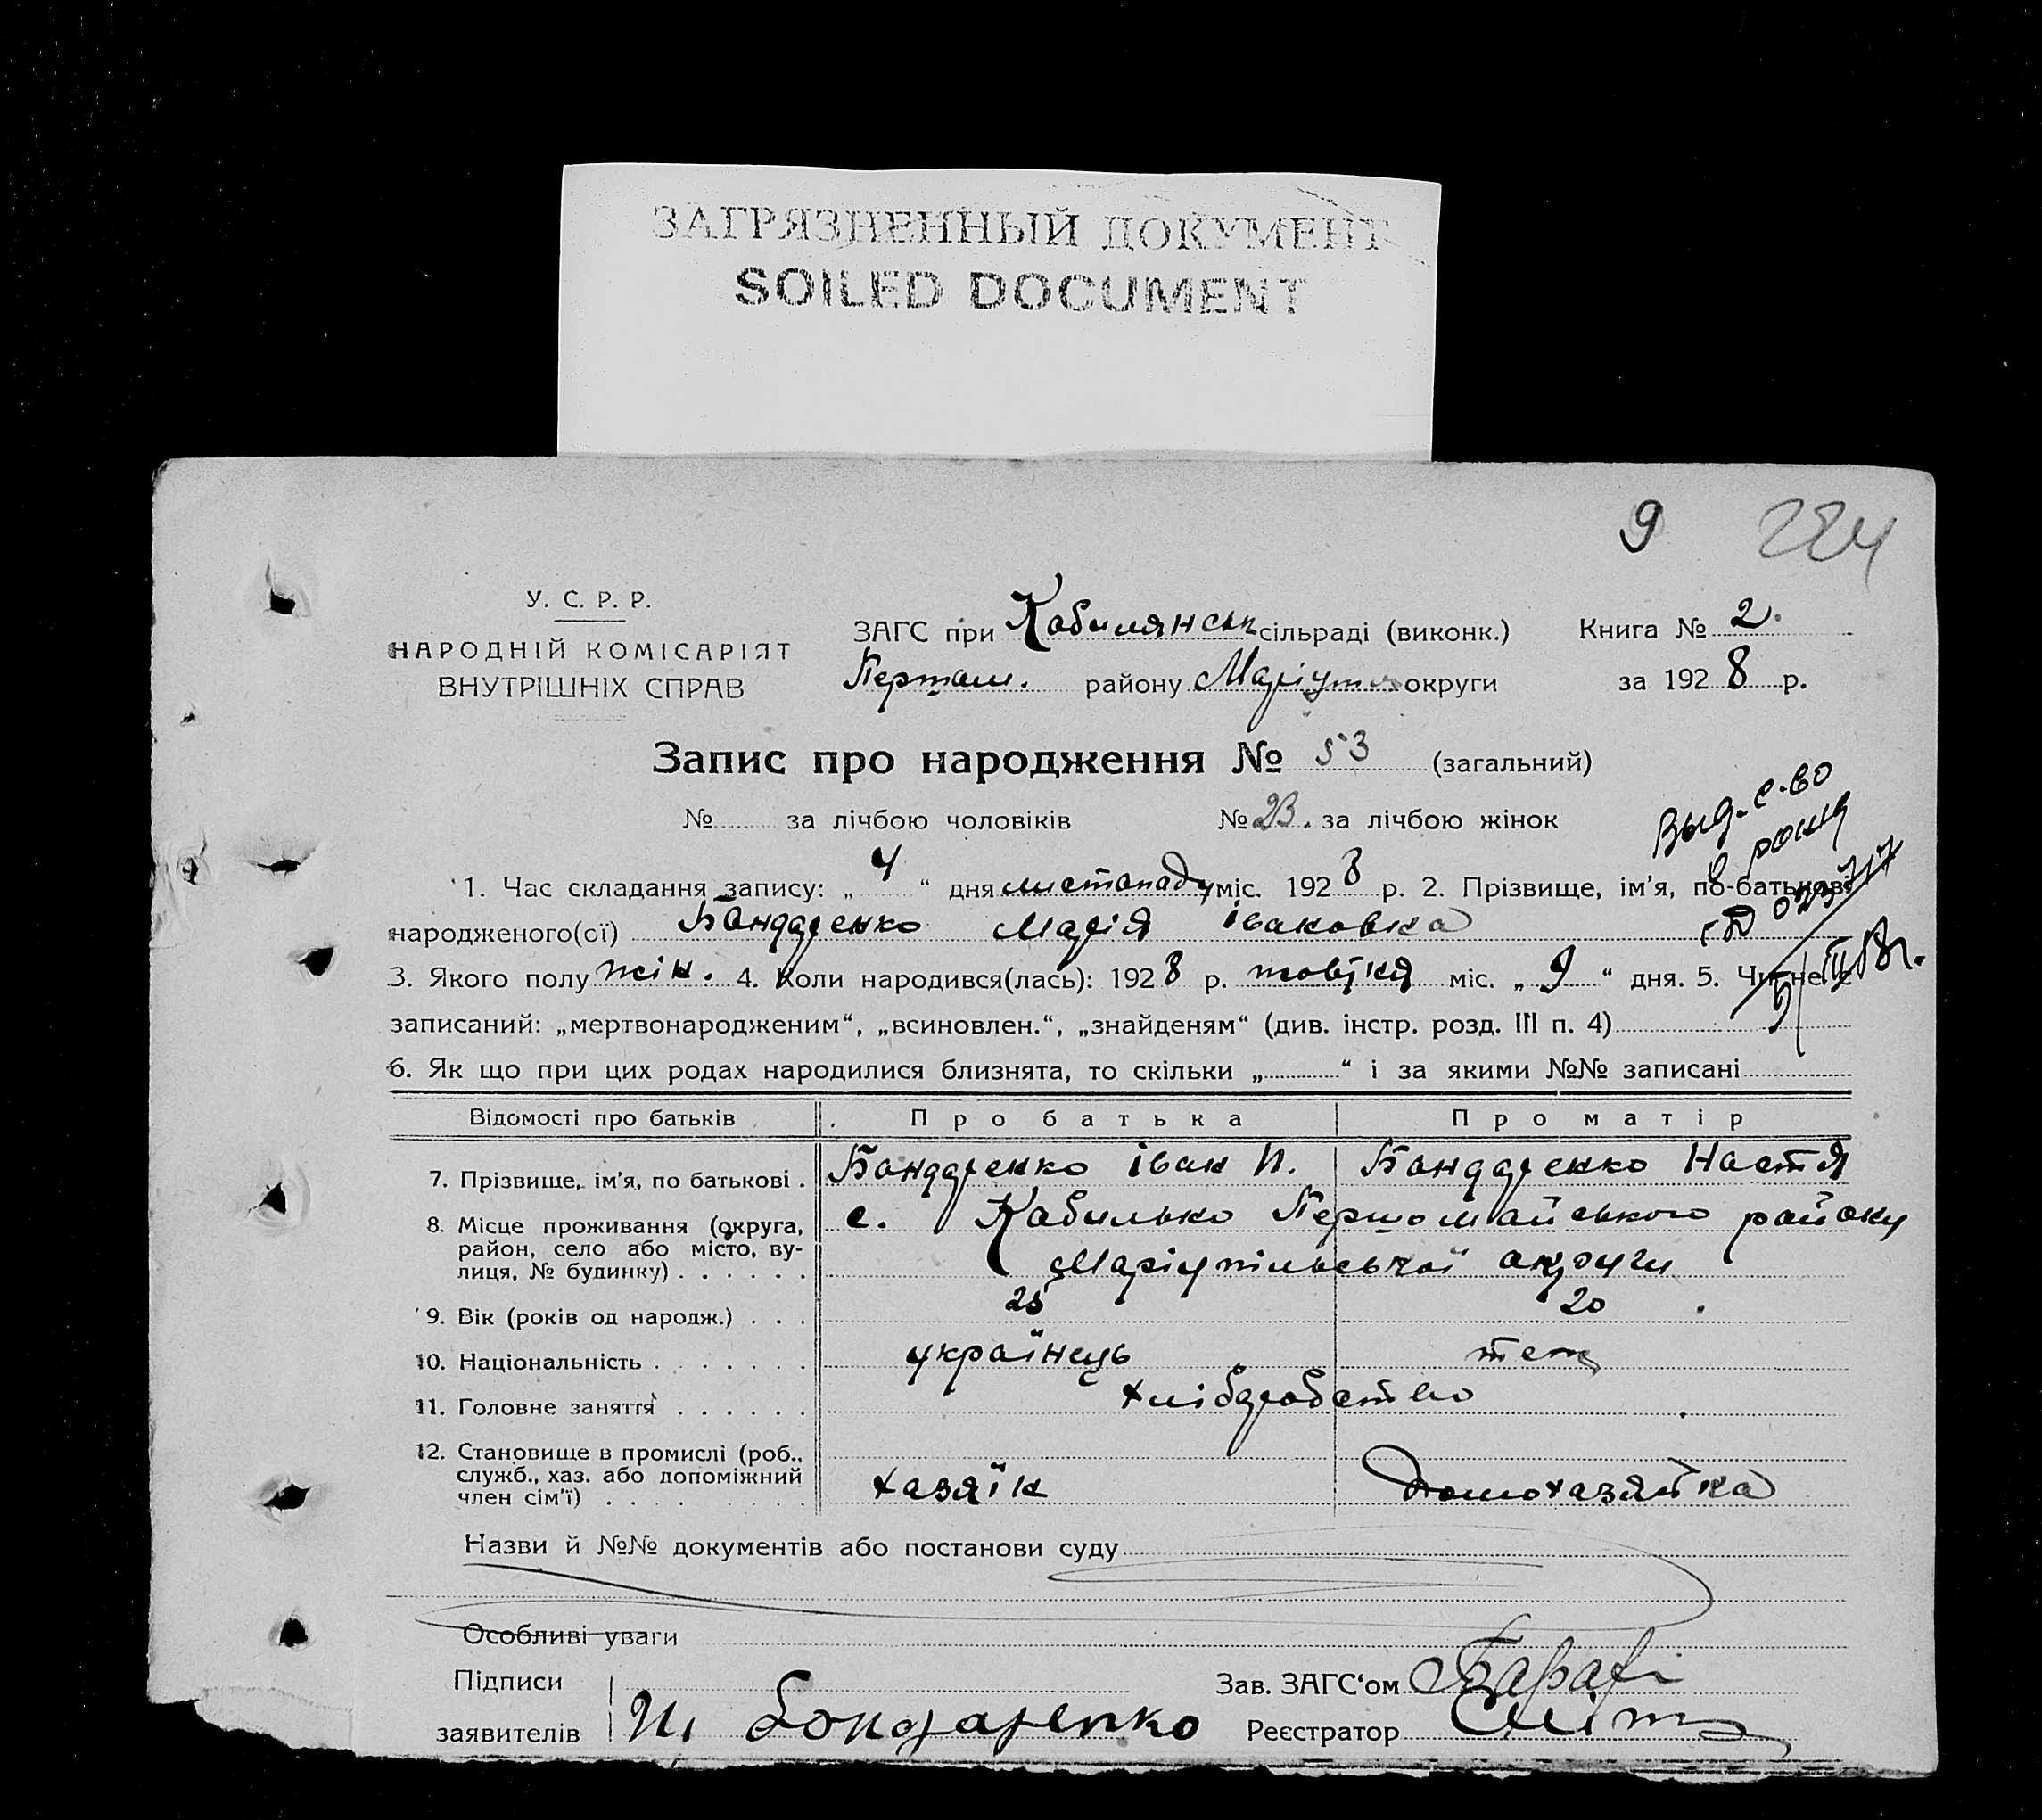 ЗАГРЯЗНЕННЫЙ ДОКУМЕНТ
SOILED DOCUMENT
9 224
У. С. Р. Р.
НАРОДНІЙ КОМІСАРІЯТ
ВНУТРІШНІХ СПРАВ
ЗАГС при Кобилянськ сільраді (виконк.) Книга № 2.
Першом. району Маріуп округи за 1928 р.
Запис про народження № 53 (загальний)
№ за лічбою чоловіків № 23. за лічбою жінок
Выд. с-во
о рожд
1. Час складання запису: „ 4 “ дня листопаду міс. 1928 р. 2. Прізвище, ім'я, по-батькові
народженого(ої) Бондаренко Марія Івановна
3. Якого полу жін. 4. Коли народився(лась): 1928 р. жовтня міс. „ 9 “ дня. 5. Чи не є
записаний: „мертвонародженим“, „всиновлен.“, „знайденям“ (див. інстр. розд. III п. 4)
6. Як що при цих родах народилися близнята, то скільки „ “ і за якими №№ записані
Відомості про батьків Про батька Про матір
7. Прізвище, ім'я, по батькові . Бондаренко Іван И. Бондаренко Настя
8. Місце проживання (округа, район, село або місто, вулиця, № будинку) . . . . . . с. Кобилько Першомайського району
Маріупільської округи
9. Вік (років од народж.) . . . 25 20
10. Національність . . . . . . . українець теж
11. Головне заняття . . . . . . хліборобство
12. Становище в промислі (роб.,
служб., хаз. або допоміжний
член сім'ї) . . . . хазяїн домохазяйка
Назви й №№ документів або постанови суду
Особливі уваги
Підписи Зав. ЗАГС'ом
заявителів И. Бондаренко Реєстратор